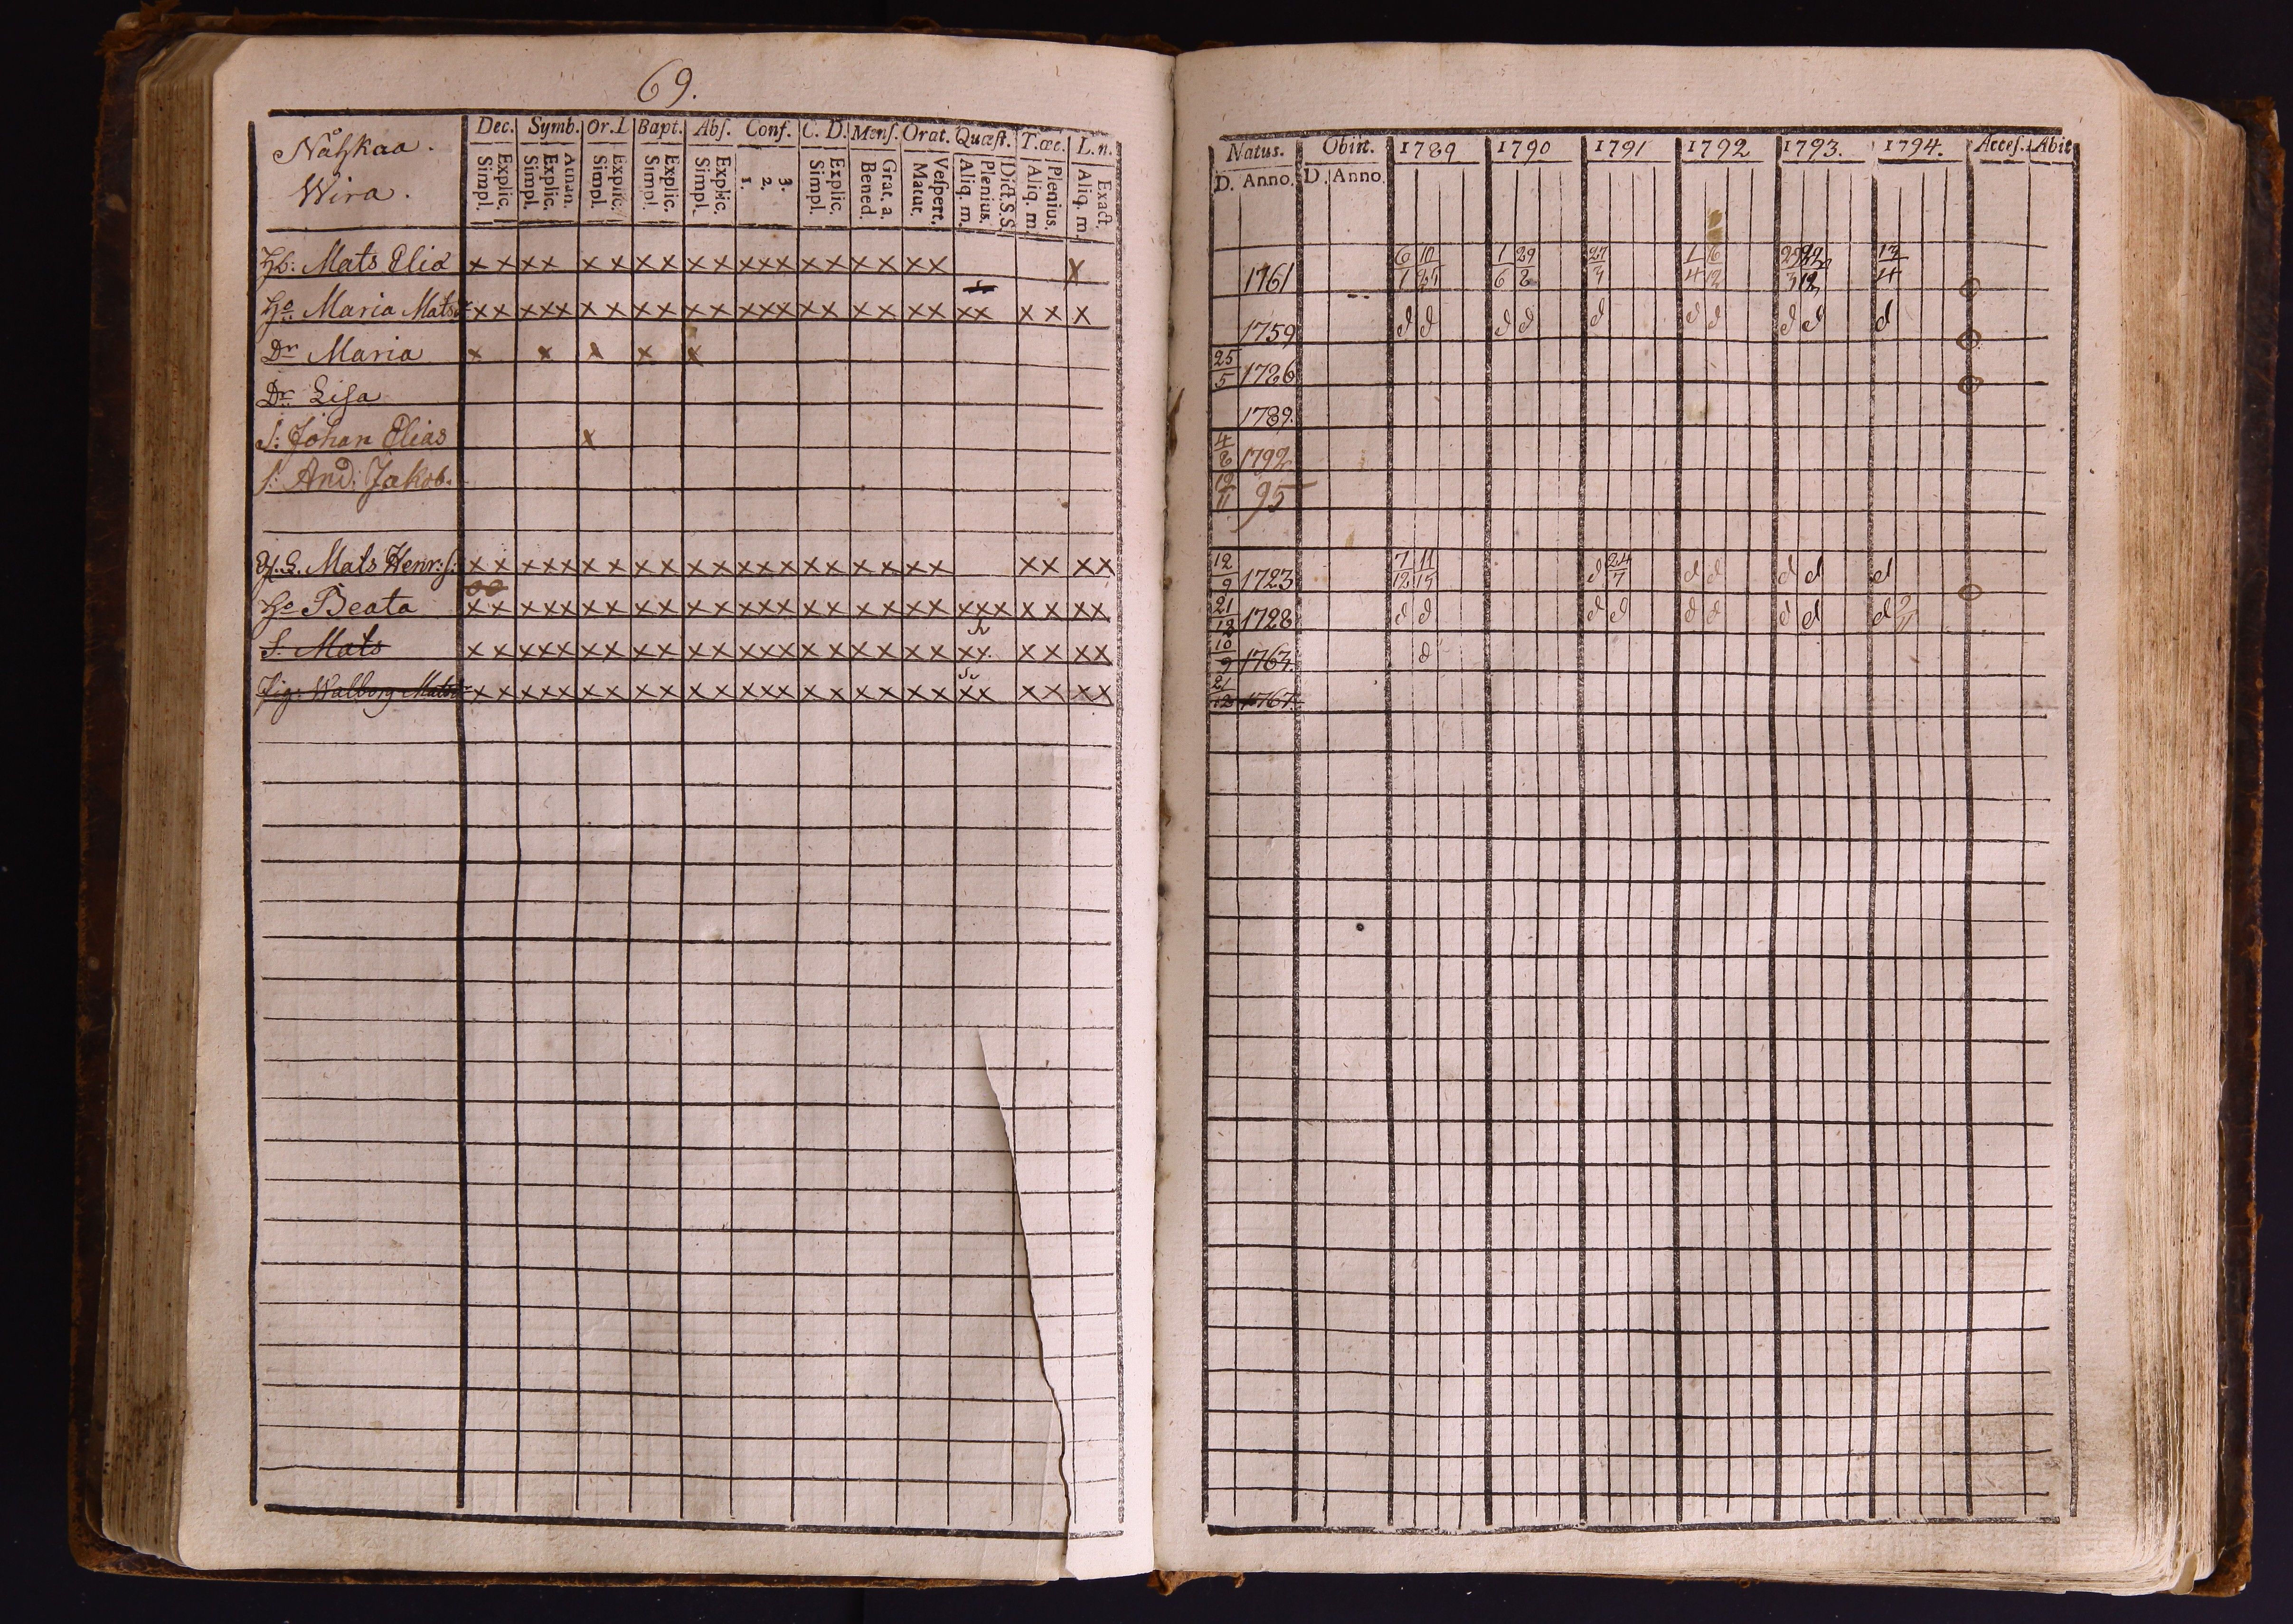 69.
Dec. Symb. Or. D. Bapt. Abſ. Conf. C. D. Menſ. Orat. Quæſt. T. œc. L. n.
Nåhkaa.
Wira.
Simpl. Explic. Simpl. Explic. Athan. Simpl. Explic. Simpl. Explic. Simpl. Explic. 1. 2. 3. Simpl. Explic. Bened. Grat. a. Matut. Veſpert. Aliq. m. Plenius. Dict. S. S. Aliq. m. Plenius. Aliq. m. Exact.
Hb: Mats Eliæ x x x x x x x x x x x x x x x x x x x x x
Ho Maria Mats x x x x x x x x x x x x x x x x x x x x x x x x x
Dr Maria x x x x x
Dr Lisa
S: Johan Elias x
S: And: Jakob.
Mats Henr: s: x x x x x x x x x x x x x x x x x x x x x x x x
Ho Beata x x x x x x x x x x x x x x x x x x x x x x x x x x x
S: Mats x x x x x x x x x x x x x x x x x x x x x x x x x x
Pig: Walborg Mats x x x x x x x x x x x x x x x x x x x x x x x x x x
Natus. Obiit. 1789 1790 1791 1792 1793. 1794. Acceſ. Abit
D. Anno. D. Anno.
1761 6/1 1/6 29/8 27/3 1/4 13/4
1759 d d d d d d d d d d
25/5 1786
1789.
4/8 1792
12/11 95
12/9 1723 7/12 11/15 d 24/7 d d d d d
21/12 1728 d d d d d d d d d
10/9 1764. d
21/12 1767.